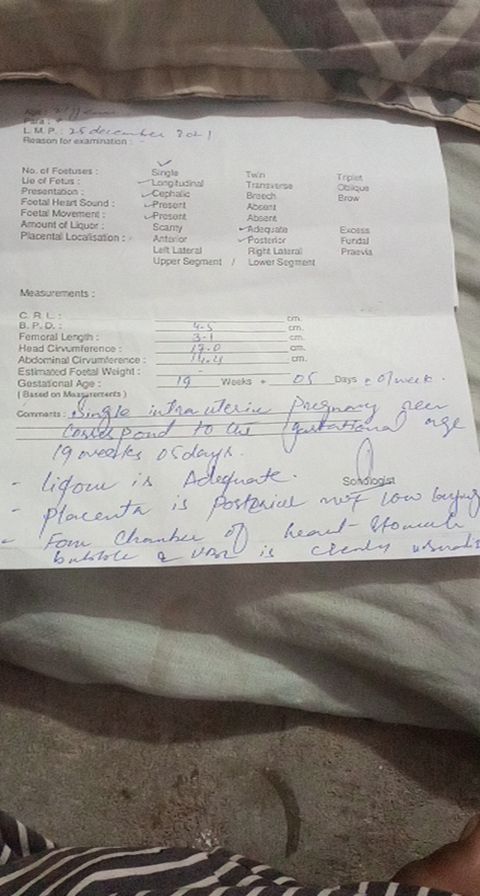 Para :
L. M. P. : 25 december 2021
Reason for examination : -
No. of Foetuses : Single Twin Triplet
Lie of Fetus : Longitudinal Transverse Oblique
Presentation : Cephalic Breech Brow
Foetal Heart Sound : Present Absent
Foetal Movement : Present Absent
Amount of Liquor : Scanty Adequate Excess
Placental Localisation : Anterior Posterior Fundal
Left Lateral Right Lateral Praevia
Upper Segment / Lower Segment
Measurements :
C. R. L. : cm.
B. P. D. : 4.5 cm.
Femoral Length : 3.1 cm.
Head Circumference : 17.0 cm.
Abdominal Circumference : 14.4 cm.
Estimated Foetal Weight : -
Gestational Age : 19 Weeks + 05 Days ± 01 week.
( Based on Measurements )
Comments : Single intrauterine Pregnancy seen
Correspond to the gestational age
19 weeks 05 days.
- liqour is Adequate.
Sonologist
- Placenta is Posterior not low lying
- Four Chamber of heart - Stomach
bubble & is clearly